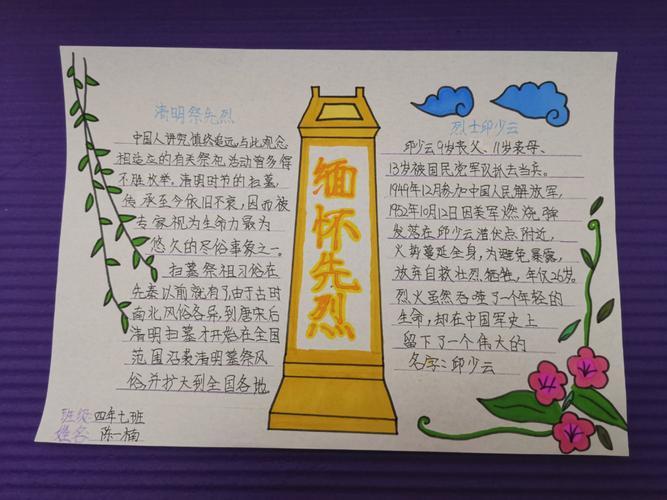 清明祭先烈
中国人讲究慎终追远,与此观念
相适应的有关祭祀活动曾多得
不胜枚举。清明时节的扫墓,
传承至今依旧不衰,因而被
专家视为生命力最为
悠久的民俗事象之一。
扫墓祭祖习俗在
先秦以前就有了,由于古时
南北风俗各异,到唐宋后
清明扫墓才开始在全国
范围沿袭清明墓祭风
俗,并扩大到全国各地
班级:四年七班
姓名: 陈一楠
缅怀先烈
烈士邱少云
邱少云9岁丧父、11岁丧母、
13岁被国民党军队抓去当兵。
1949年12月参加中国人民解放军,
1952年10月12日因美军燃烧弹
发落在邱少云潜伏点附近,
火势蔓延全身,为避免暴露,
放弃自救壮烈牺牲,年仅26岁。
烈火虽然吞噬了一个年轻的
生命,却在中国军史上
留下了一个伟大的
名字:邱少云